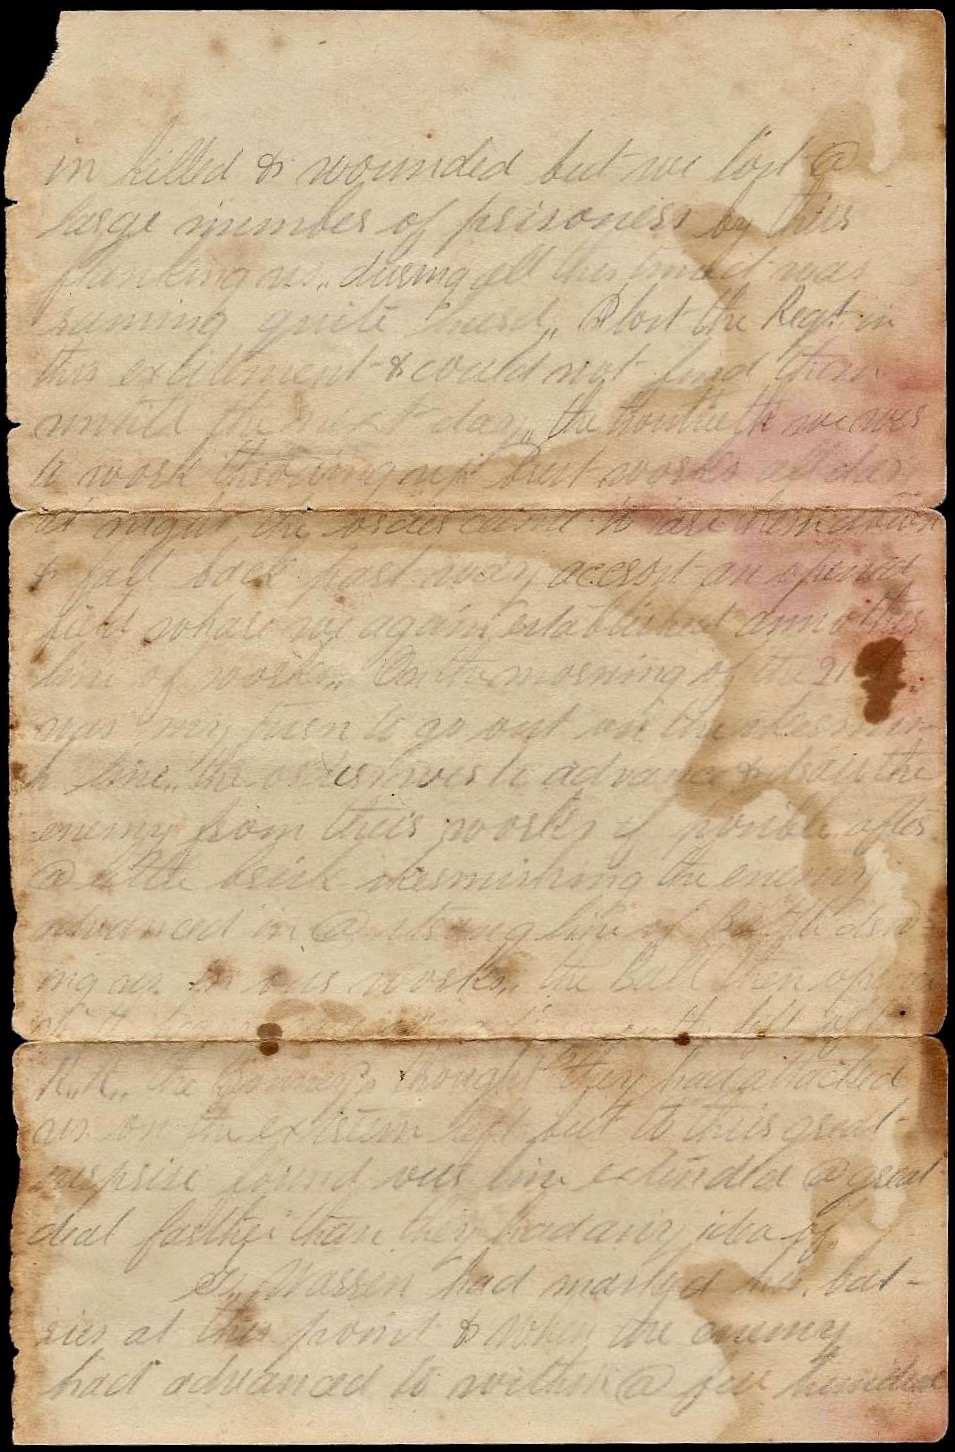 in killed & wounded but we lost @
large number of prisoners by thier
flanking us,, during all this time it was
raining quite hard,, I lost the Regt. in
this exsitment & could not find them
untill the next day,, the twentieth we was
to work throwing up brest works all day
at night the orders came to tare them down
& fall back part way accrost an opened
field whare we again established annother
line of works,, On the morning of the 21
was my turn to go out on the skermis-
h line,, the orders was to advance & drive the
enemy from theis works if posible after
@ little brisk skermishing the enemy
advanced in @ strong line of Battle driv-
ing us in ours works,, the Ball then opened
the left of
R,,R,, the Gonney's thought they had attacked
us on the extreem left but to theis great
surprise found ours line extended @ great
deal farther than they had any idea of
G,, Warren had masked his bat-
ries at this point & when the enemy
had advanced to within @ few hundred